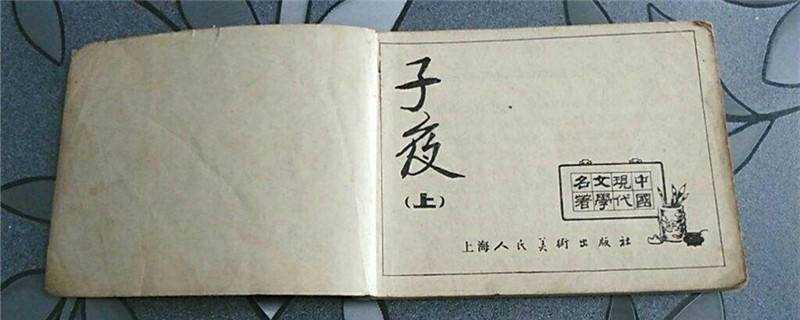 子夜
(上)
中國
現代
文學
名著
上海人民美術出版社